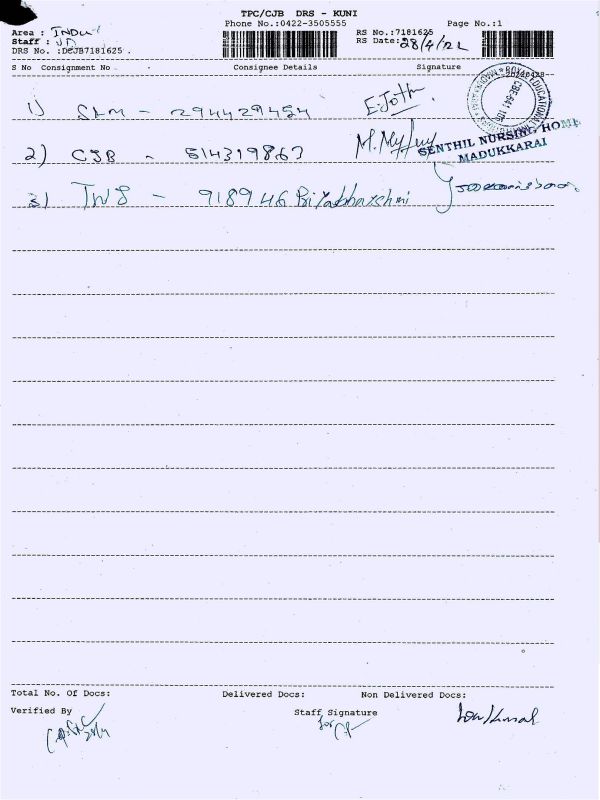 TPC/CJB DRS - KUNI
Phone No.:0422-3505555 Page No.:1
Area : INDU
RS No.:7181625
Staff : JD
RS Date: 28/4/22
DRS No. :DCJB7181625 .
S No Consignment No Consignee Details Signature
20220428
1) SLM - 294429454 E.Joth
2) CJB - 514319863
SENTHIL NURSING HOME
MADUKKARAI
3) TWS - 918946
Total No. Of Docs: Delivered Docs: Non Delivered Docs:
Verified By Staff Signature
for